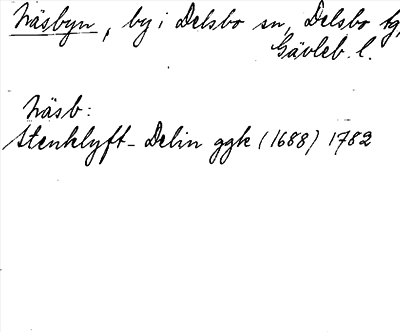 Näsbyn, by i Delsbo sn, Delsbo tg,
Gävleb. l.
Näsb:
Stenklyft- Delin ggk (1688) 1782